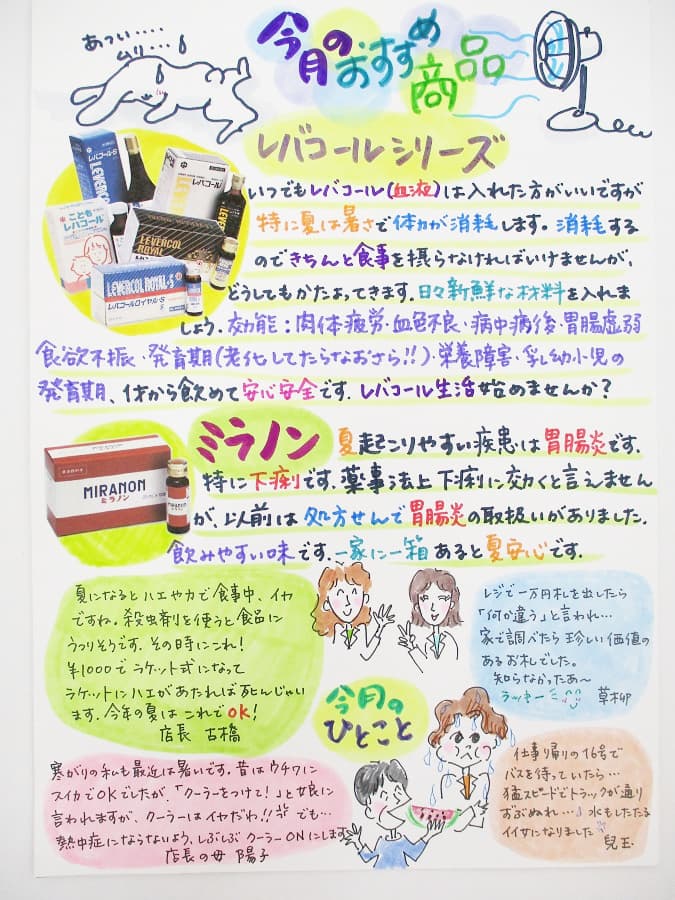 あつい・・・・
ムリ・・・・
今月の
おすすめ
商品
レバコールシリーズ
レバコール-S
LEVERCOL-S
レバコール
LEVERCOL
こども
レバコール
LEVERCOL
ROYAL
LEVERCOL ROYAL-S
レバコールロイヤル-S
いつでもレバコール(血液)は入れた方がいいですが
特に夏は暑さで体力が消耗します。消耗する
のできちんと食事を摂らなければいけませんが、
どうしてもかたよってきます。日々新鮮な材料を入れま
しょう。効能：肉体疲労・血色不良・病中病後・胃腸虚弱
食欲不振・発育期(老化してたらなおさら!!)・栄養障害・乳幼小児の
発育期、1才から飲めて安心安全です。レバコール生活始めませんか？
MIRANON
ミラノン
ミラノン
夏起こりやすい疾患は胃腸炎です。
特に下痢です。薬事法上下痢に効くと言えません
が、以前は処方せんで胃腸炎の取扱いがありました。
飲みやすい味です。一家に一箱あると夏安心です。
夏になるとハエやカで食事中、イヤ
ですね。殺虫剤を使うと食品に
うつりそうです。その時にこれ!
¥1000でラケット式になって
ラケットにハエがあたれば死んじゃい
ます。今年の夏はこれでOK!
店長 古橋
レジで一万円札を出したら
「何か違う」と言われ…
家で調べたら珍しい価値の
あるお札でした。
知らなかったあ〜
ラッキー 草柳
今月の
ひとこと
寒がりの私も最近は暑いです。昔はウチワに
スイカでOKでしたが、「クーラーをつけて!」と娘に
言われますが、クーラーはイヤだわ!! でも…
熱中症にならないよう、しぶしぶクーラーONにします
店長の母 陽子
仕事帰りの16号で
バスを待っていたら…
猛スピードでトラックが通り
ずぶぬれ…♪ 水もしたたる
イイ女になりました
兒玉.